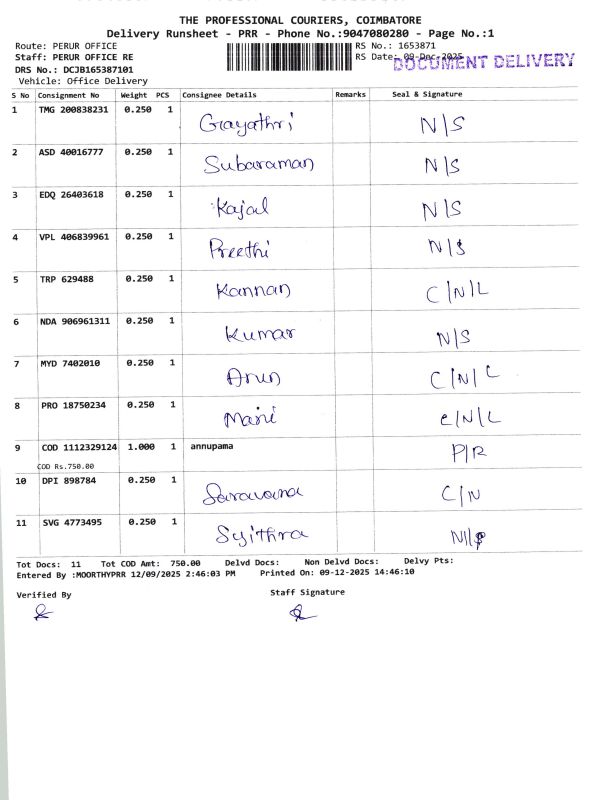 THE PROFESSIONAL COURIERS, COIMBATORE
Delivery Runsheet - PRR - Phone No.:9047080280 - Page No.:1
Route: PERUR OFFICE RS No.: 1653871
Staff: PERUR OFFICE RE RS Date: 09-Dec-2025
DOCUMENT DELIVERY
DRS No.: DCJB165387101
Vehicle: Office Delivery
S No Consignment No Weight PCS Consignee Details Remarks Seal & Signature
1 TMG 200838231 0.250 1 Grayathri N/S
2 ASD 40016777 0.250 1 Subaraman N/S
3 EDQ 26403618 0.250 1 Kajal N/S
4 VPL 406839961 0.250 1 Preethi N/S
5 TRP 629488 0.250 1 Kannan C/N/L
6 NDA 906961311 0.250 1 Kumar N/S
7 MYD 7402010 0.250 1 Arun C/N/L
8 PRO 18750234 0.250 1 Mani C/N/L
9 COD 1112329124 1.000 1 annupama P/R
COD Rs.750.00
10 DPI 898784 0.250 1 Saravana C/N
11 SVG 4773495 0.250 1 Syithra N/S
Tot Docs: 11 Tot COD Amt: 750.00 Delvd Docs: Non Delvd Docs: Delvy Pts:
Entered By :MOORTHYPRR 12/09/2025 2:46:03 PM Printed On: 09-12-2025 14:46:10
Verified By Staff Signature